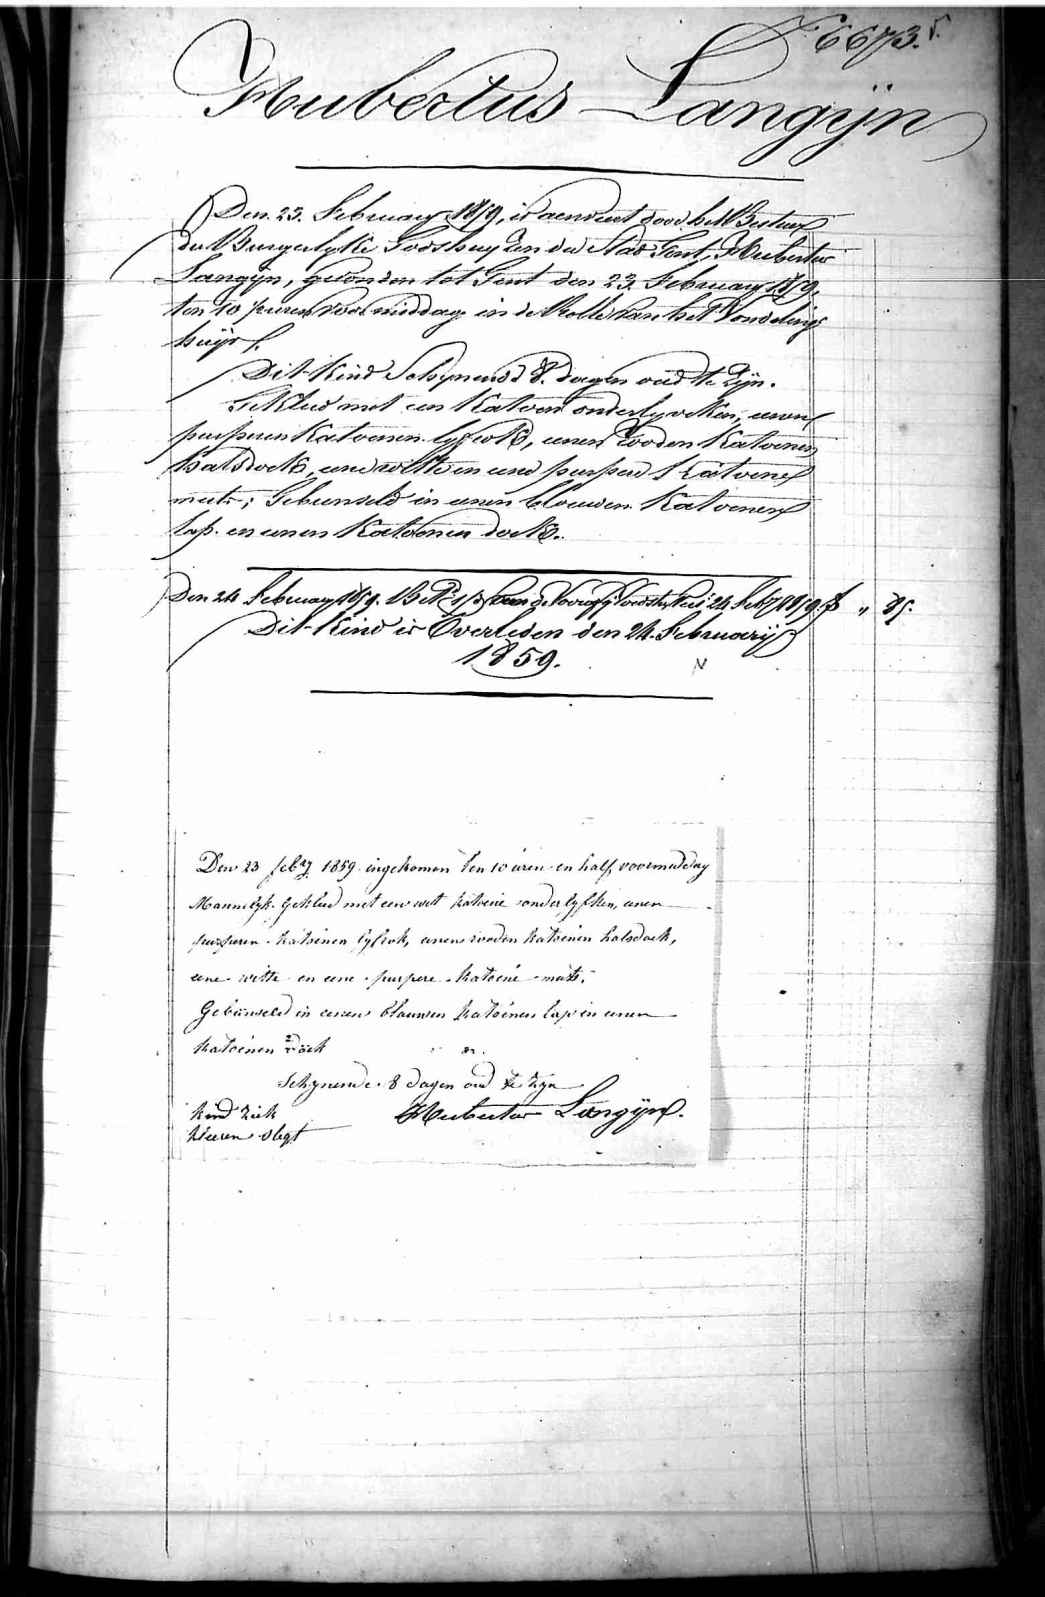 N° 6673.
Hubertus Langijn
Den 23. February 1859, is aenveert door het Bestuer
der Burgerlyke Godshuyzen der Stad Gent, Hubertus
Langijn, gevonden tot Gent den 23. February 1859,
ten 10 Â½ uren voormiddag in de Rolle van het Vondelings
huijs.
Dit Kind Schynende 8. dagen oud te Zijn.
Gekleed met een Katoen onderlyveken, eenen
purperen Katoenen lyfrok, eenen rooden Katoenen
halsdoek, eene witte en eene purpere Katoene
muts; Gebunseld in eenen blauwen Katoenen
lap en eenen Katoenen doek.
Den 24 February 1859. 24 Feb. 1859. f " 85.
Dit Kind is Overleden den 24. February
1859.
Den 23 feb.ry 1859 ingekomen ten 10 uren en half voormiddag
Mannelyk. gekleed met een wit katoene onderlyfken, eenen
purperen katoenen lyfrok, eenen rooden katoenen halsdoek,
eene witte en eene purpere katoene muts.
Gebunseld in eenen blauwen katoenen lap in eenen
katoenen doek
Schynende 8 dagen oud te zyn
kind ziek
kleeren slegt
Hubertus Langijn.